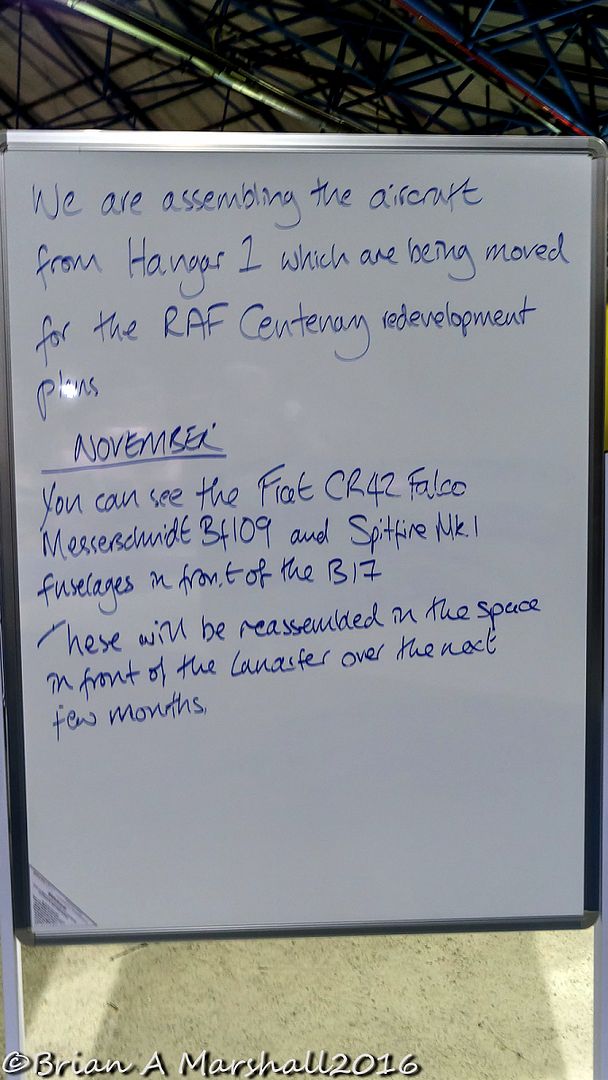 We are assembling the aircraft
from Hangar 1 which are being moved
for the RAF Centenary redevelopment
plans
NOVEMBER
You can see the Fiat CR42 Falco
Messerschmidt Bf109 and Spitfire Mk.1
fuselages in front of the B17
These will be reassembled in the space
in front of the Lancaster over the next
few months.
©Brian A Marshall2016